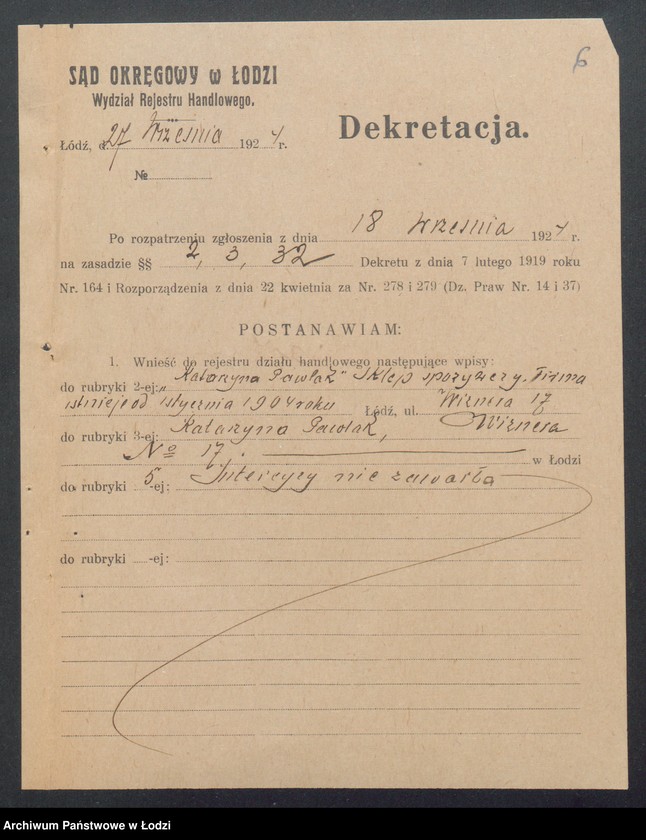 6
SĄD OKRĘGOWY w ŁODZI
Wydział Rejestru Handlowego.
Dekretacja.
Łódź, d. 27 Września 1924 r.
№
Po rozpatrzeniu zgłoszenia z dnia 18 Września 1924 r.
na zasadzie §§ 2, 3, 32 Dekretu z dnia 7 lutego 1919 roku
Nr. 164 i Rozporządzenia z dnia 22 kwietnia za Nr. 278 i 279 (Dz. Praw Nr. 14 i 37)
POSTANAWIAM:
1. Wnieść do rejestru działu handlowego następujące wpisy:
do rubryki 2-ej: „Katarzyna Pawlak" Sklep spożywczy. Firma
istnieje od stycznia 1904 roku Łódź, ul. Wiznera 17
do rubryki 3-ej: Katarzyna Pawlak, Wiznera
№ 17. w Łodzi
do rubryki 5-ej: Intercyzy nie zawarła
do rubryki -ej:
Archiwum Państwowe w Łodzi